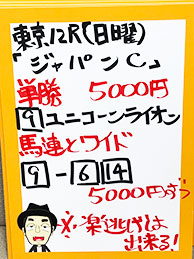 東京12R(日曜)
「ジャパンC」
単勝 5000円
9 ユニコーンライオン
馬連とワイド
9-6 14
5000円ずつ
※楽逃げは
出来る!